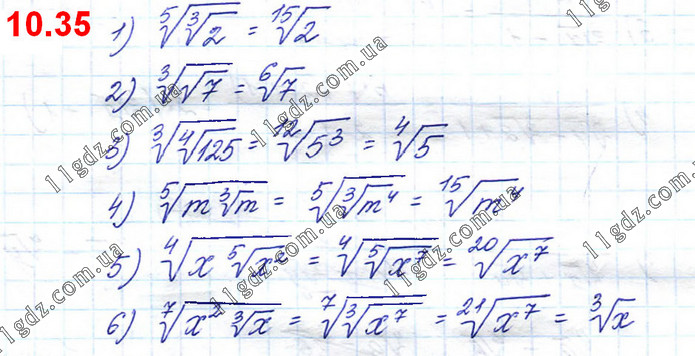 10.35
1) ⁵√(³√2) = ¹⁵√2
2) ³√(√7) = ⁶√7
3) ³√(⁴√125) = ¹²√(5³) = ⁴√5
4) ⁵√(m ³√m) = ⁵√(³√(m⁴)) = ¹⁵√(m⁴)
5) ⁴√(x ⁵√(x²)) = ⁴√(⁵√(x⁷)) = ²⁰√(x⁷)
6) ⁷√(x² ³√x) = ⁷√(³√(x⁷)) = ²¹√(x⁷) = ³√x
11gdz.com.ua
11gdz.com.ua
11gdz.com.ua
11gdz.com.ua
11gdz.com.ua
11gdz.com.ua